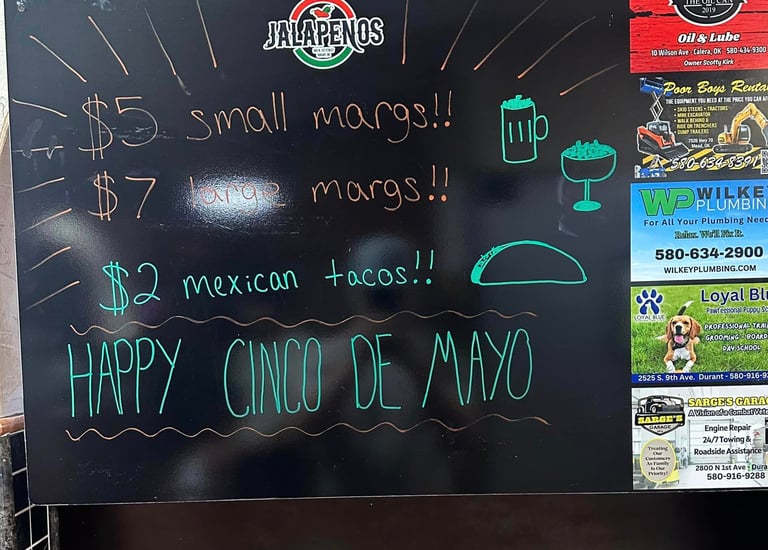 JALAPEÑOS
$5 small margs!!
$7 large margs!!
$2 mexican tacos!!
HAPPY CINCO DE MAYO
THE OIL CAN
2019
Oil & Lube
10 Wilson Ave - Calera, OK 580-434-9300
Owner Scotty Kirk
Poor Boys Rental
THE EQUIPMENT YOU NEED AT THE PRICE YOU CAN AF
• SKID STEERS • TRACTORS
• MINI EXCAVATOR
• WALK BEHIND &
RIDE ON TRENCHERS
• DUMP TRAILERS
7526 Hwy 70
Mead, OK
580-634-8394
WP WILKE
PLUMBIN
For All Your Plumbing Need
Relax. We'll Fix It.
580-634-2900
WILKEYPLUMBING.COM
LOYAL BLUE
Loyal Blu
Pawfessional Puppy Sc
PROFESSIONAL TRAI
GROOMING · BOARD
DAY SCHOOL
2525 S. 9th Ave. Durant - 580-916-9
SARGE'S GARAG
A Vision of a Combat Vete
SARGE'S
GARAGE
Engine Repair
24/7 Towing &
Roadside Assistance
Treating
Our
Customers
As Family
Is Our
Priority!
2800 N 1st Ave - Dura
580-916-9288